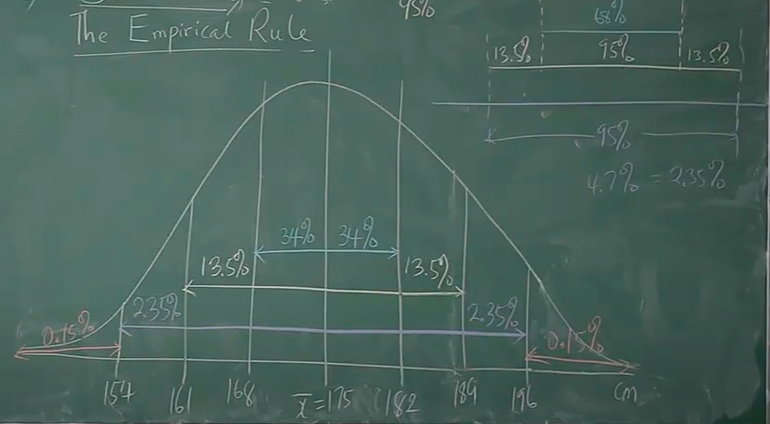 95%
The Empirical Rule
68%
13.5% 95% 13.5%
95%
4.7% = 2.35%
34% 34%
13.5% 13.5%
2.35% 2.35%
0.15% 0.15%
154 161 168 x̄=175 182 189 196 cm